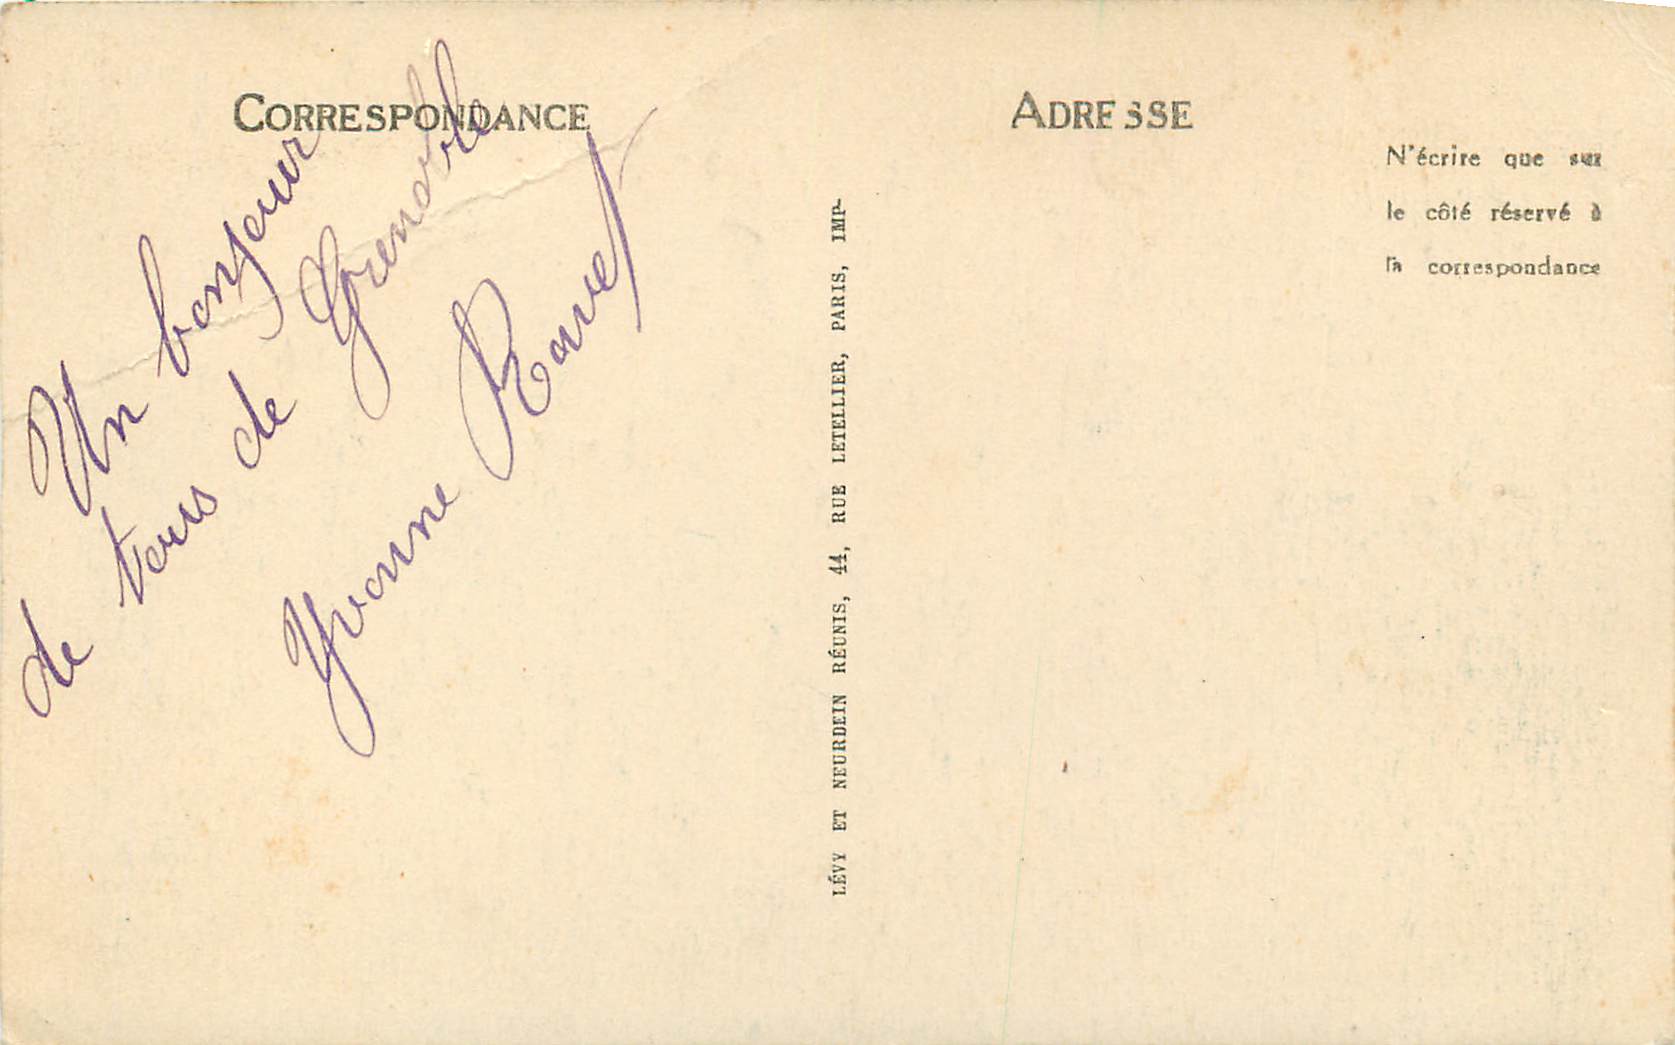 CORRESPONDANCE
Un bonjour
de tous de Grenoble
Yvonne Ravet
LÉVY ET NEURDEIN RÉUNIS, 44, RUE LETELLIER, PARIS, IMP-
ADRESSE
N'écrire que sur
le côté réservé à
la correspondance